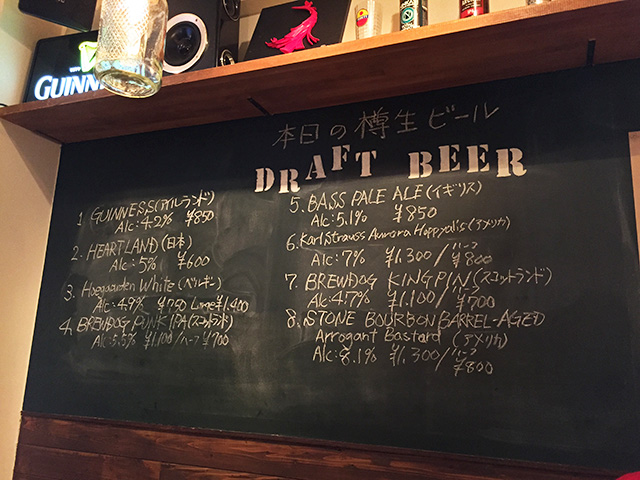 GUINNESS
本日の樽生ビール
DRAFT BEER
1 GUINNESS(アイルランド)
Alc 4.2% ¥850
2. HEARTLAND (日本)
Alc: 5% ¥600
3. Hoegaarden White (ベルギー)
Alc: 4.9% ¥750 Large ¥1,400
4. BREWDOG PUNK IPA (スコットランド)
Alc: 5.5% ¥1,100/ハーフ ¥700
5. BASS PALE ALE (イギリス)
Alc: 5.1% ¥850
6. Karl Strauss Aurora Hoppyalis (アメリカ)
Alc: 7% ¥1,300/ハーフ ¥800
7. BREWDOG KINGPIN (スコットランド)
Alc: 4.7% ¥1,100/ハーフ ¥700
8. STONE BOURBON BARREL-AGED
Arrogant Bastard (アメリカ)
Alc: 8.1% ¥1,300/ハーフ ¥800